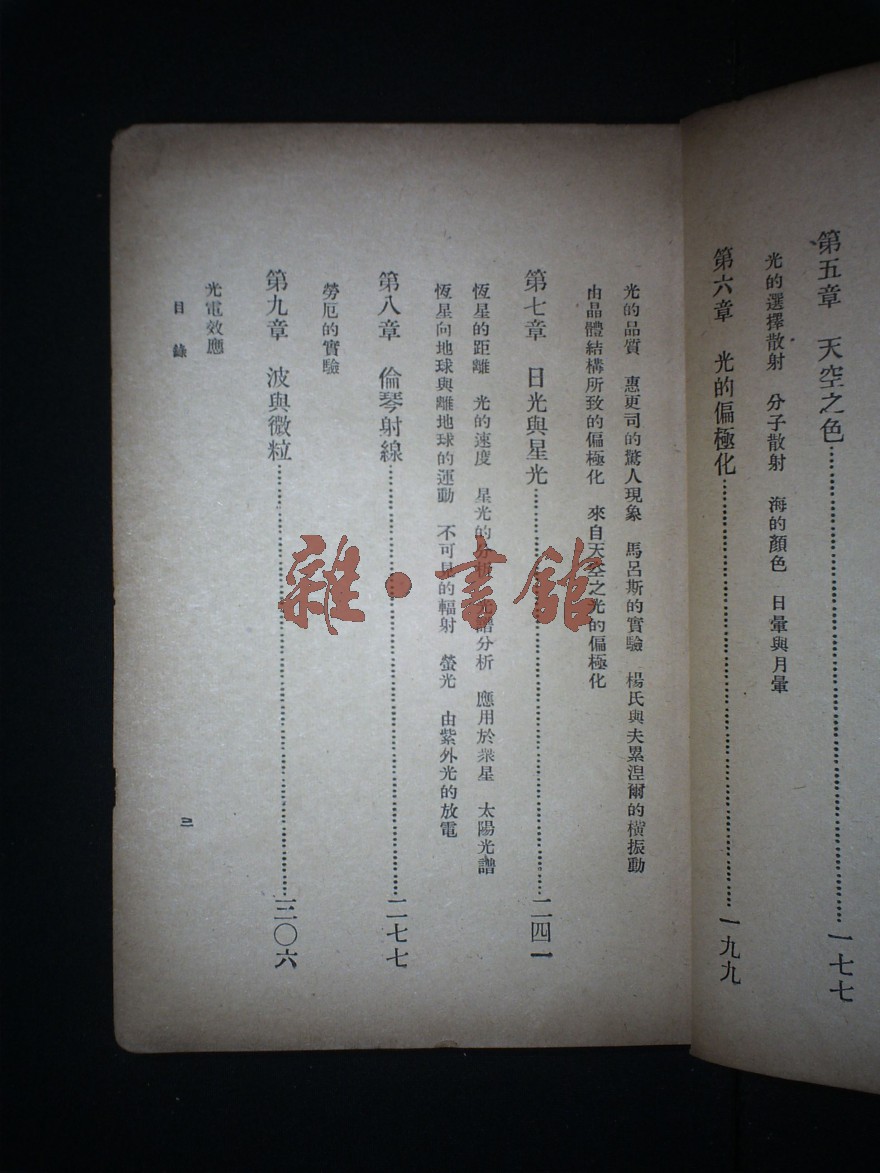 第五章　天空之色……一七七
光的選擇散射　分子散射　海的顏色　日暈與月暈
第六章　光的偏極化……一九九
光的品質　惠更司的驚人現象　馬呂斯的實驗　楊氏與夫累涅爾的橫振動
由晶體結構所致的偏極化　來自天空之光的偏極化
第七章　日光與星光……二四一
恆星的距離　光的速度　星光的分析　光譜分析　應用於眾星　太陽光譜
恆星向地球與離地球的運動　不可見的輻射　螢光　由紫外光的放電
第八章　倫琴射線……二七七
勞厄的實驗
第九章　波與微粒……三〇六
光電效應
目錄
三
雜·書館